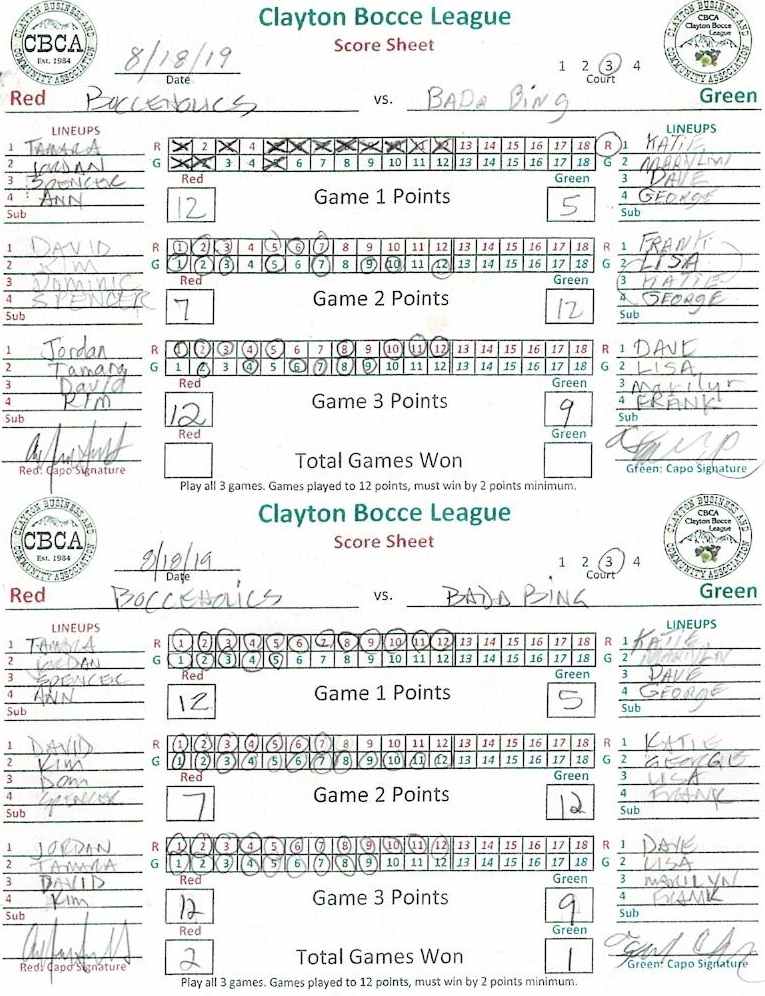 CLAYTON BUSINESS AND COMMUNITY ASSOCIATION
CBCA
Est. 1984
Clayton Bocce League
Score Sheet
CLAYTON BUSINESS AND COMMUNITY ASSOCIATION
CBCA
Clayton Bocce League
8/18/19
Date
1 2 3 4
Court
Red BOCCEHOLICS vs. BADA BING Green
LINEUPS
1 TAMARA
2 JORDAN
3 SPENCER
4 ANN
Sub
R 1 2 3 4 5 6 7 8 9 10 11 12 13 14 15 16 17 18 R
G 1 2 3 4 5 6 7 8 9 10 11 12 13 14 15 16 17 18 G
Red Green
12 Game 1 Points 5
LINEUPS
1 KATIE
2 MARILYN
3 DAVE
4 GEORGE
Sub
1 DAVID
2 KIM
3 DOMINIC
4 SPENCER
Sub
R 1 2 3 4 5 6 7 8 9 10 11 12 13 14 15 16 17 18 R
G 1 2 3 4 5 6 7 8 9 10 11 12 13 14 15 16 17 18 G
Red Green
7 Game 2 Points 12
1 FRANK
2 LISA
3 KATIE
4 GEORGE
Sub
1 Jordan
2 Tamara
3 David
4 KIM
Sub
R 1 2 3 4 5 6 7 8 9 10 11 12 13 14 15 16 17 18 R
G 1 2 3 4 5 6 7 8 9 10 11 12 13 14 15 16 17 18 G
Red Green
12 Game 3 Points 9
Red Green
1 DAVE
2 LISA
3 Marilyn
4 FRANK
Sub
Total Games Won
Red: Capo Signature
Green: Capo Signature
Play all 3 games. Games played to 12 points, must win by 2 points minimum.
CLAYTON BUSINESS AND COMMUNITY ASSOCIATION
CBCA
Est. 1984
Clayton Bocce League
Score Sheet
CLAYTON BUSINESS AND COMMUNITY ASSOCIATION
CBCA
Clayton Bocce League
8/18/19
Date
1 2 3 4
Court
Red BOCCEHOLICS vs. BADA BING Green
LINEUPS
1 TAMARA
2 JORDAN
3 SPENCER
4 ANN
Sub
R 1 2 3 4 5 6 7 8 9 10 11 12 13 14 15 16 17 18 R
G 1 2 3 4 5 6 7 8 9 10 11 12 13 14 15 16 17 18 G
Red Green
12 Game 1 Points 5
LINEUPS
1 KATIE
2 MARILYN
3 DAVE
4 GEORGE
Sub
1 DAVID
2 Kim
3 Dom
4 SPENCER
Sub
R 1 2 3 4 5 6 7 8 9 10 11 12 13 14 15 16 17 18 R
G 1 2 3 4 5 6 7 8 9 10 11 12 13 14 15 16 17 18 G
Red Green
7 Game 2 Points 12
1 KATIE
2 GEORGIE
3 LISA
4 FRANK
Sub
1 JORDAN
2 TAMARA
3 DAVID
4 Kim
Sub
R 1 2 3 4 5 6 7 8 9 10 11 12 13 14 15 16 17 18 R
G 1 2 3 4 5 6 7 8 9 10 11 12 13 14 15 16 17 18 G
Red Green
12 Game 3 Points 9
Red Green
1 DAVE
2 LISA
3 MARILYN
4 FRANK
Sub
2 Total Games Won 1
Red: Capo Signature
Green: Capo Signature
Play all 3 games. Games played to 12 points, must win by 2 points minimum.